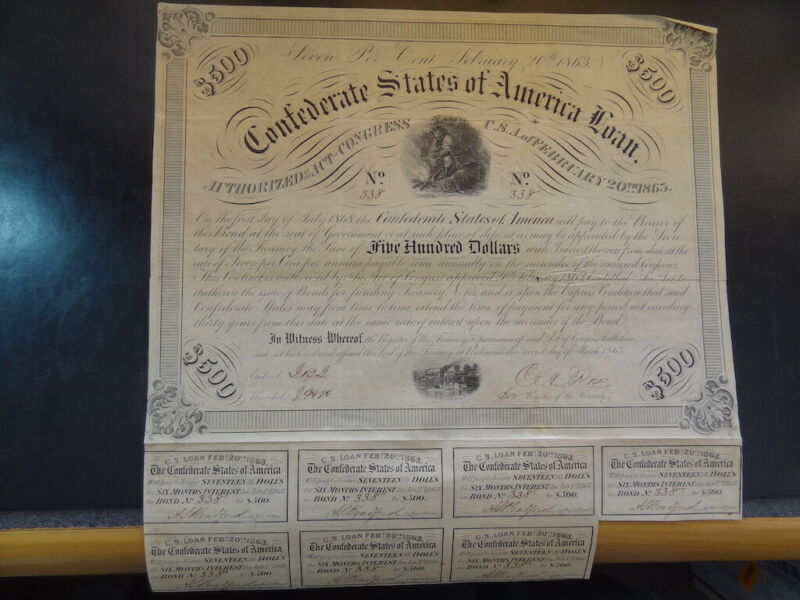 $500 Seven Per Cent February 20th 1863. $500
Confederate States of America Loan.
AUTHORIZED ACT CONGRESS C.S.A. of FEBRUARY 20TH 1863.
No. No.
338 338
On the first day of July 1868 the Confederate States of America will pay to the Bearer of
this Bond at the seat of Government or at such place of deposit as may be appointed by the Secre-
tary of the Treasury the Sum of Five Hundred Dollars with Interest thereon from date at the
rate of Seven per Cent per annum payable semi annually on the surrender of the annexed Coupons.
This Contract is authorized by an Act of Congress approved 1863
authorize the issue of Bonds for funding Treasury Notes, and is upon the Express Condition that said
Confederate States may from time to time extend the time of payment for any period not exceeding
thirty years from this date at the same rate of interest upon the surrender of the Bond.
In Witness Whereof the Register of the Treasury in pursuance of said Act of Congress hath here-
unto set his hand and affixed the Seal of the Treasury at Richmond this second day of March 1863.
Entered
Recorded for Register of the Treasury
$500 $500
C.S. LOAN FEBY. 20TH 1863.
The Confederate States of America
Will pay to bearer SEVENTEEN 50 DOLLS
for SIX MONTHS INTEREST due
on BOND No 338 for $500.
C.S. LOAN FEBY. 20TH 1863.
The Confederate States of America
Will pay to bearer SEVENTEEN 50 DOLLS
for SIX MONTHS INTEREST due
on BOND No 338 for $500.
C.S. LOAN FEBY. 20TH 1863.
The Confederate States of America
Will pay to bearer SEVENTEEN 50 DOLLS
for SIX MONTHS INTEREST due
on BOND No 338 for $500.
C.S. LOAN FEBY. 20TH 1863.
The Confederate States of America
Will pay to bearer SEVENTEEN 50 DOLLS
for SIX MONTHS INTEREST due
on BOND No 338 for $500.
C.S. LOAN FEBY. 20TH 1863.
The Confederate States of America
Will pay to bearer SEVENTEEN 50 DOLLS
for SIX MONTHS INTEREST due
on BOND No 338 for $500.
C.S. LOAN FEBY. 20TH 1863.
The Confederate States of America
Will pay to bearer SEVENTEEN 50 DOLLS
for SIX MONTHS INTEREST due
on BOND No 338 for $500.
C.S. LOAN FEBY. 20TH 1863.
The Confederate States of America
Will pay to bearer SEVENTEEN 50 DOLLS
for SIX MONTHS INTEREST due
on BOND No 338 for $500.